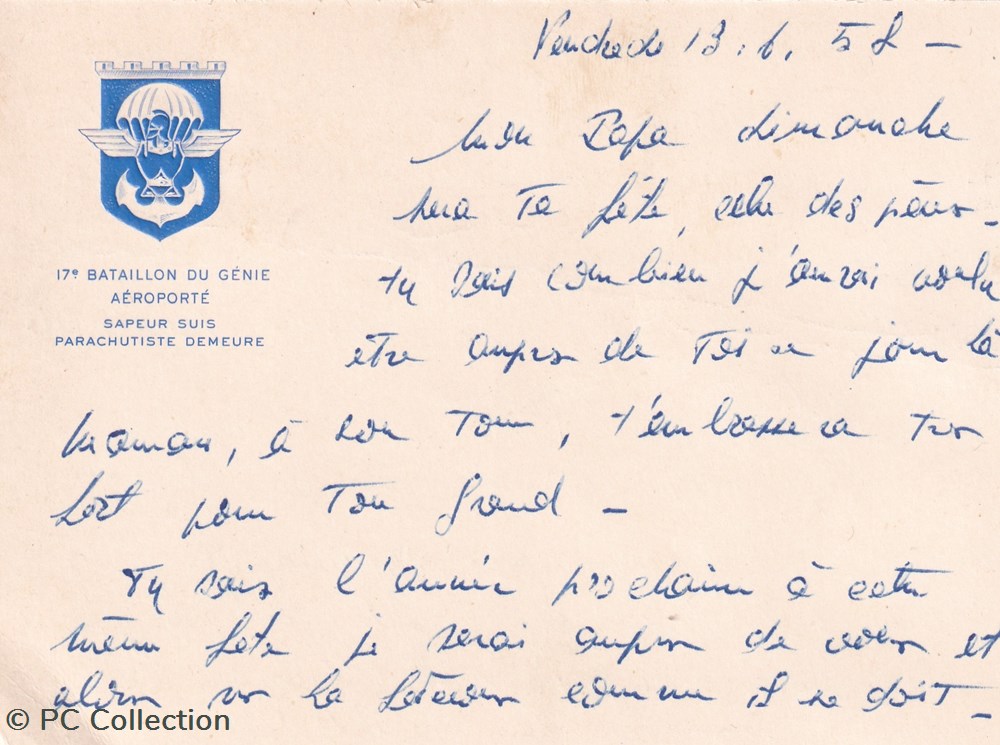 Vendredi 13.6.58 —
Mon Papa dimanche
sera Ta fête, celle des pères -
17e BATAILLON DU GÉNIE
AÉROPORTÉ
SAPEUR SUIS
PARACHUTISTE DEMEURE
tu sais combien j'aurai voulu
être aupres de Toi ce jour là
Maman, à son Tour, t'embrassera tres
fort pour Ton Grand —
Tu sais l'année prochaine à cette
même fete je serai aupres de vous et
alors la feterons comme il se doit -
© PC Collection